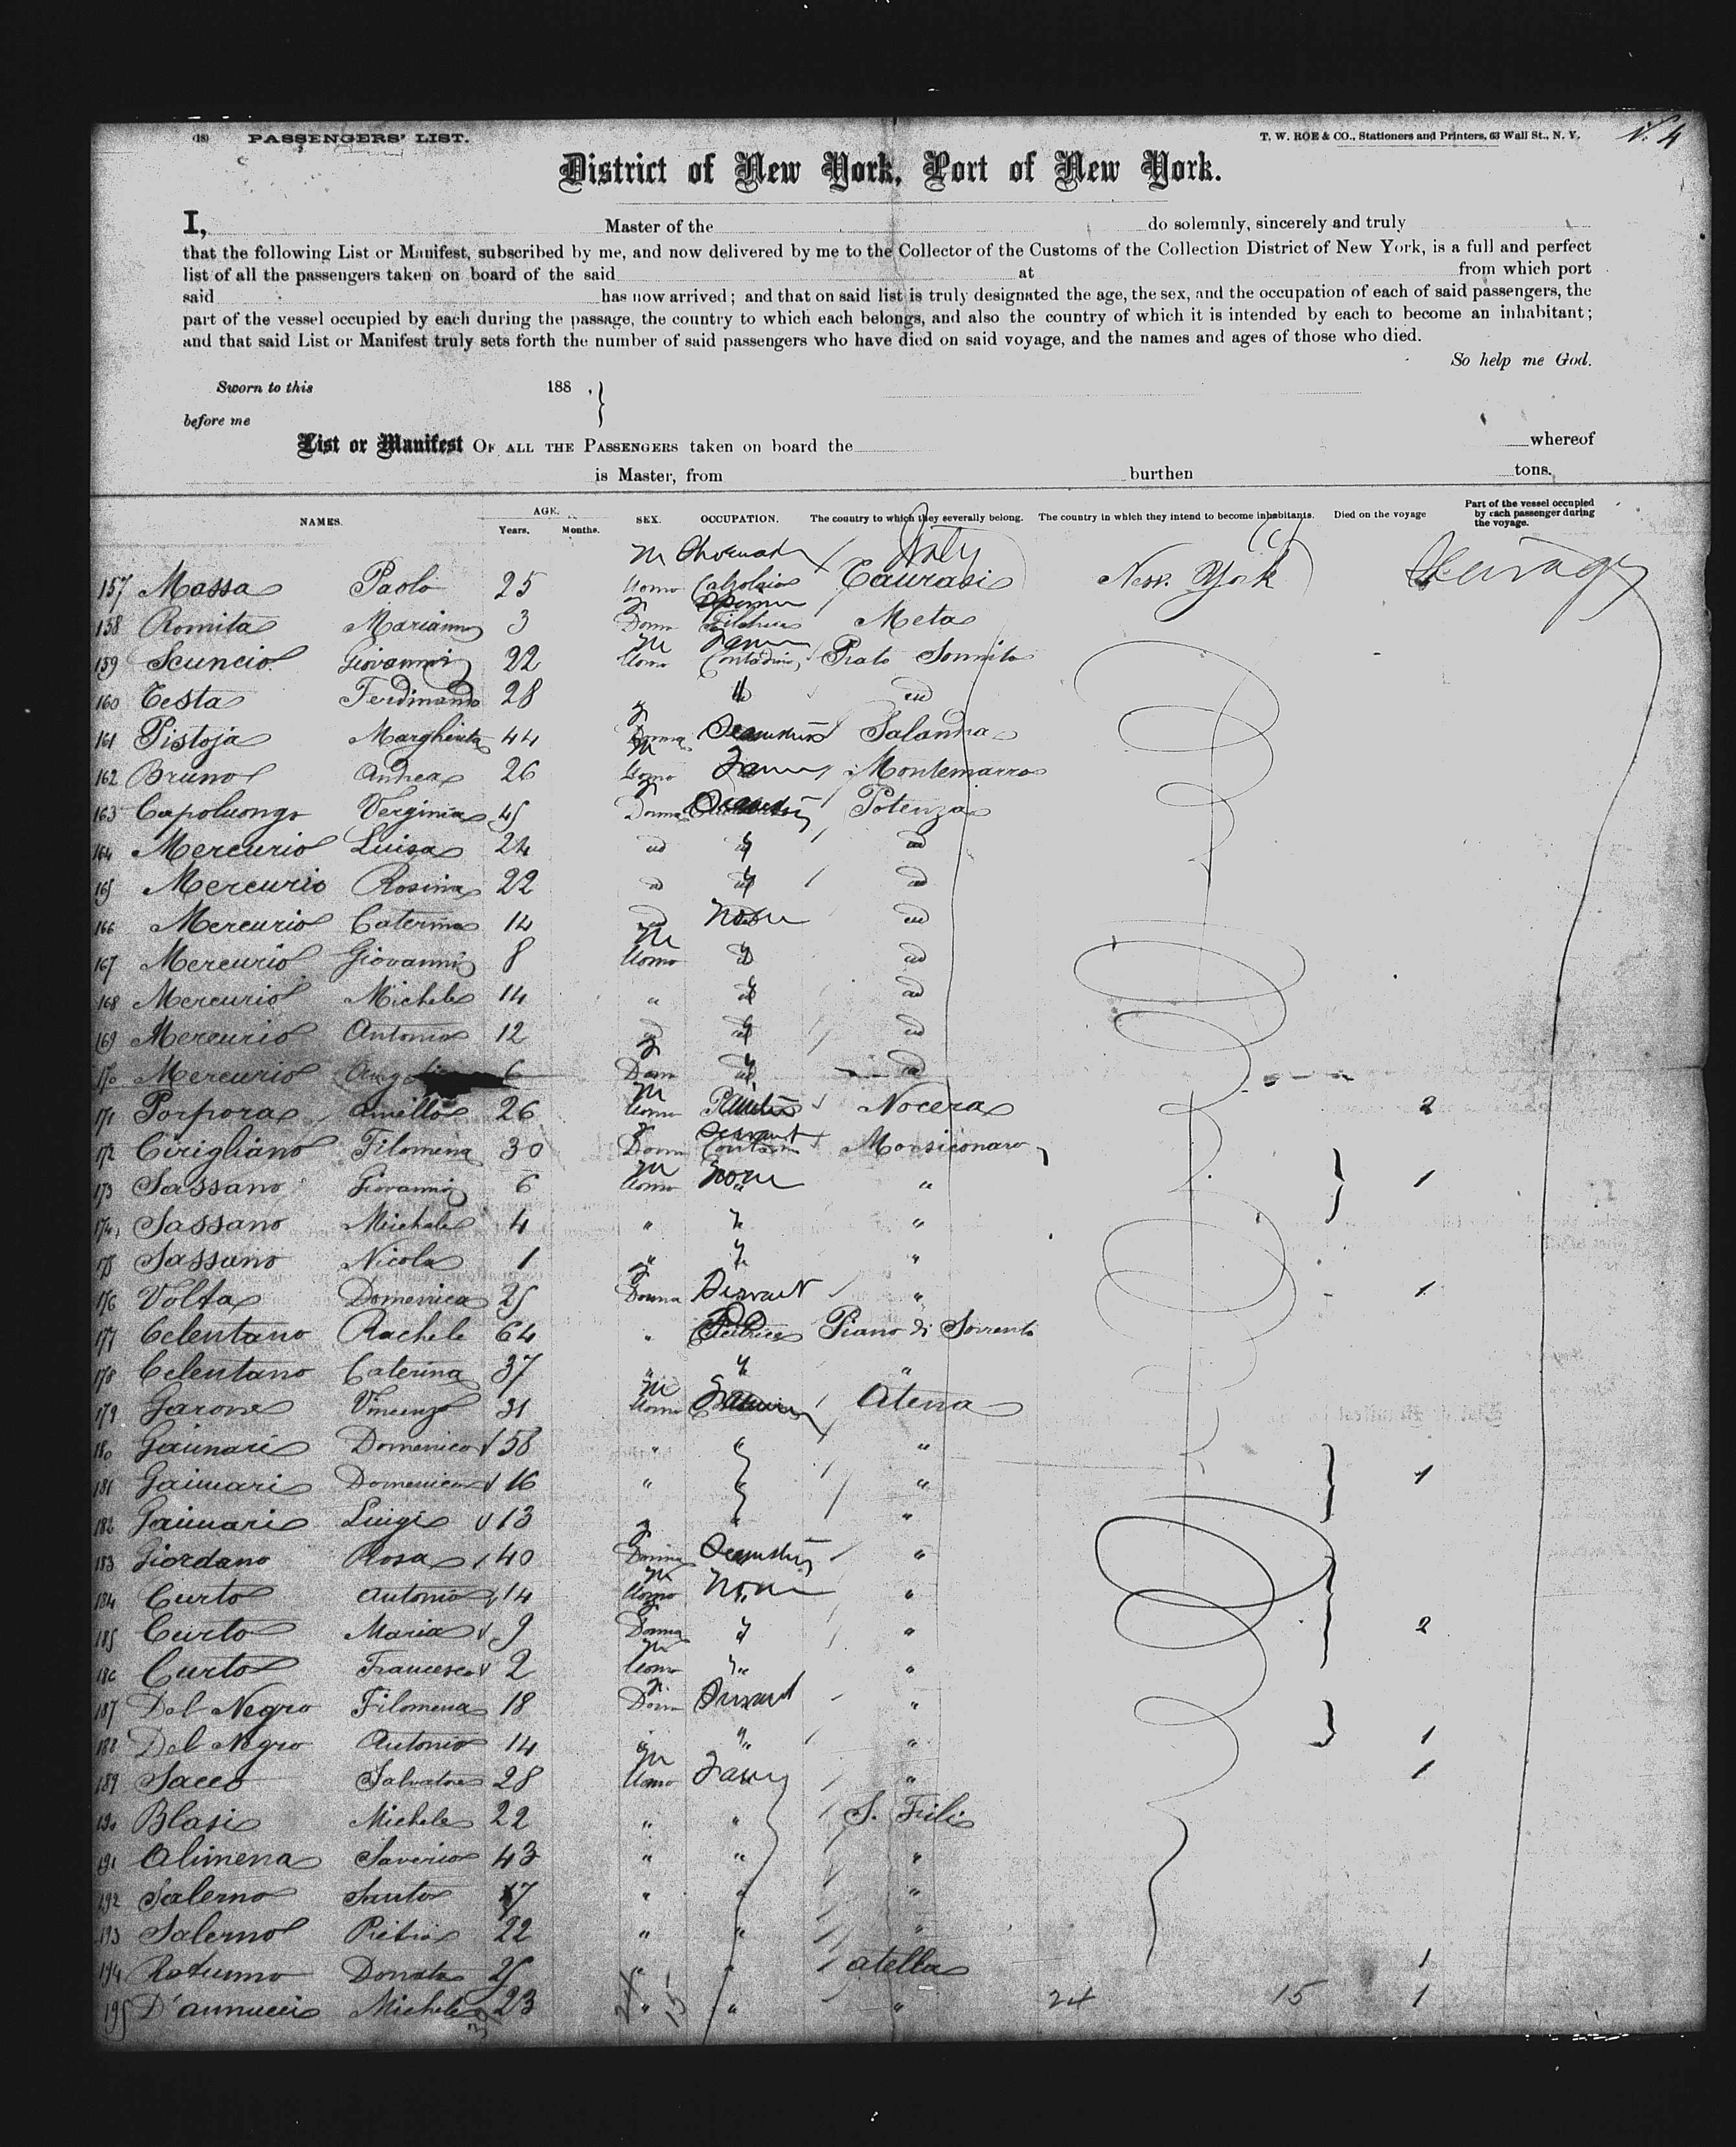 (18) PASSENGERS' LIST. T. W. ROE & CO., Stationers and Printers, 63 Wall St., N. Y. N. 4
District of New York, Port of New York.
I, Master of the do solemnly, sincerely and truly
that the following List or Manifest, subscribed by me, and now delivered by me to the Collector of the Customs of the Collection District of New York, is a full and perfect
list of all the passengers taken on board of the said at from which port
said has now arrived; and that on said list is truly designated the age, the sex, and the occupation of each of said passengers, the
part of the vessel occupied by each during the passage, the country to which each belongs, and also the country of which it is intended by each to become an inhabitant;
and that said List or Manifest truly sets forth the number of said passengers who have died on said voyage, and the names and ages of those who died.
So help me God.
Sworn to this 188 ,
before me
List or Manifest OF ALL THE PASSENGERS taken on board the whereof
is Master, from burthen tons.
NAMES. AGE. Years. Months. SEX. OCCUPATION. The country to which they severally belong. The country in which they intend to become inhabitants. Died on the voyage Part of the vessel occupied by each passenger during the voyage.
M Italy
157 Massa Paolo 25 Uomo Calzolaio Taurasi New York Steerage
158 Romita Marianna 3 Donna Meta
159 Scuncio Giovanni 22 Uomo Contadino Prato Sannita
160 Testa Ferdinando 28 id
161 Pistoja Margherita 44 Donna Salandra
162 Bruno Andrea 26 Uomo Montemarro
163 Capoluongo Verginia 45 Donna Potenza
164 Mercurio Luisa 24 id id id
165 Mercurio Rosina 22 id id id
166 Mercurio Caterina 14 id None id
167 Mercurio Giovanni 8 Uomo id id
168 Mercurio Michele 14 " id id
169 Mercurio Antonio 12 id id id
170 Mercurio 6 Donn id id
171 Porpora Aniello 26 Uomo Nocera 2
172 Cirigliano Filomena 30 Donna Servant
173 Sassano Giovanni 6 Uomo None " 1
174 Sassano Michele 4 " "
175 Sassano Nicola 1 " "
176 Volta Domenica 25 Donna Servant " 1
177 Celentano Rachele 64 " Piano di Sorrento
178 Celentano Caterina 37 " "
179 Garone Vincenzo 31 Uomo Atena
180 Gaimari Domenico 58 " "
181 Gaimari Domenico 16 " " 1
182 Gaimari Luigi 13 "
183 Giordano Rosa 40 Donna "
184 Curto Antonio 14 Uomo None "
185 Curto Maria 9 Donna " 2
186 Curto Francesco 2 Uomo "
187 Del Negro Filomena 18 Donn Servant "
188 Del Negro Antonio 14 " " 1
189 Sacco Salvatore 28 Uomo " 1
190 Blasi Michele 22 " " S. Fili
191 Alimena Saverio 43 " " "
192 Salerno Santo 17 " " "
193 Salerno Pietro 22 " " "
194 Rotunno Donato 25 " " Atella 1
195 D'annucci Michele 23 " " " 24 15 1